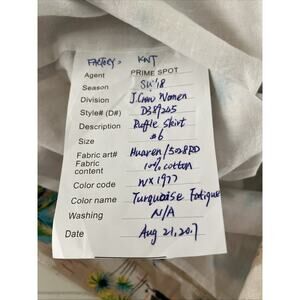 FACTORY: KNT
Agent PRIME SPOT
Season SU'18
Division J.Crew Women
Style# (D#)
Description Ruffle Skirt
Size #6
Fabric art# Huaren/5028RD
Fabric content 100% cotton
Color code WX1977
Color name Turquoise Fatigue
Washing N/A
Date Aug 21, 2017